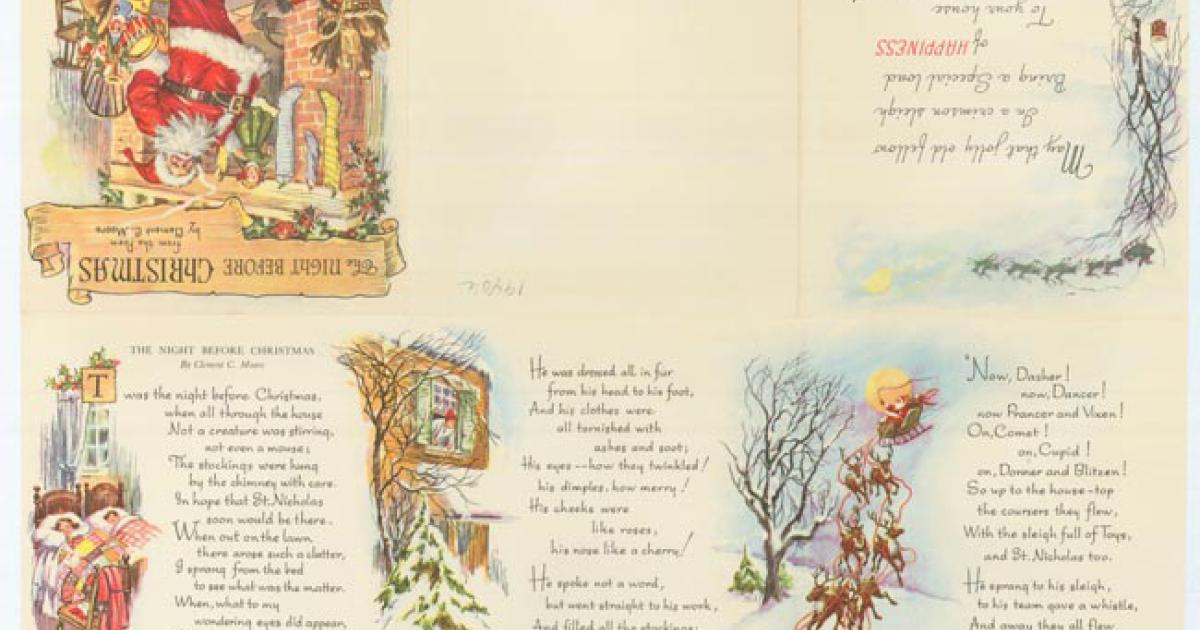 The NIGHT BEFORE CHRISTMAS
from the Poem
by Clement C. Moore
May that jolly old fellow
In a crimson sleigh
Bring a Special load
of HAPPINESS
To your house
THE NIGHT BEFORE CHRISTMAS
By Clement C. Moore
T
was the night before Christmas,
when all through the house
Not a creature was stirring,
not even a mouse;
The stockings were hung
by the chimney with care.
In hope that St. Nicholas
soon would be there.
When out on the lawn
there arose such a clatter,
I sprang from the bed
to see what was the matter.
When, what to my
wondering eyes did appear,
He was dressed all in fur
from his head to his foot,
And his clothes were
all tarnished with
ashes and soot;
His eyes--how they twinkled!
his dimples, how merry!
His cheeks were
like roses,
his nose like a cherry!
He spoke not a word,
but went straight to his work,
And filled all the stockings;
"Now, Dasher!
now, Dancer!
now Prancer and Vixen!
On, Comet!
on, Cupid!
on, Donner and Blitzen!
So up to the house-top
the coursers they flew,
With the sleigh full of Toys,
and St. Nicholas too.
He sprang to his sleigh,
to his team gave a whistle,
And away they all flew